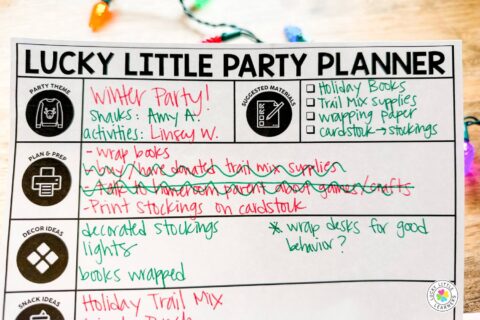 LUCKY LITTLE PARTY PLANNER
PARTY THEME
Winter Party!
snacks: Amy A.
activities: Linsey W.
SUGGESTED MATERIALS
Holiday Books
Trail Mix supplies
wrapping paper
cardstock → stockings
PLAN & PREP
- wrap books
- buy/have donated trail mix supplies
- talk to room parent about games/crafts
- Print stockings on cardstock
DECOR IDEAS
decorated stockings
lights
books wrapped
* wrap desks for good
behavior?
SNACK IDEAS
Holiday Trail Mix
LUCKY LITTLE
LEARNERS